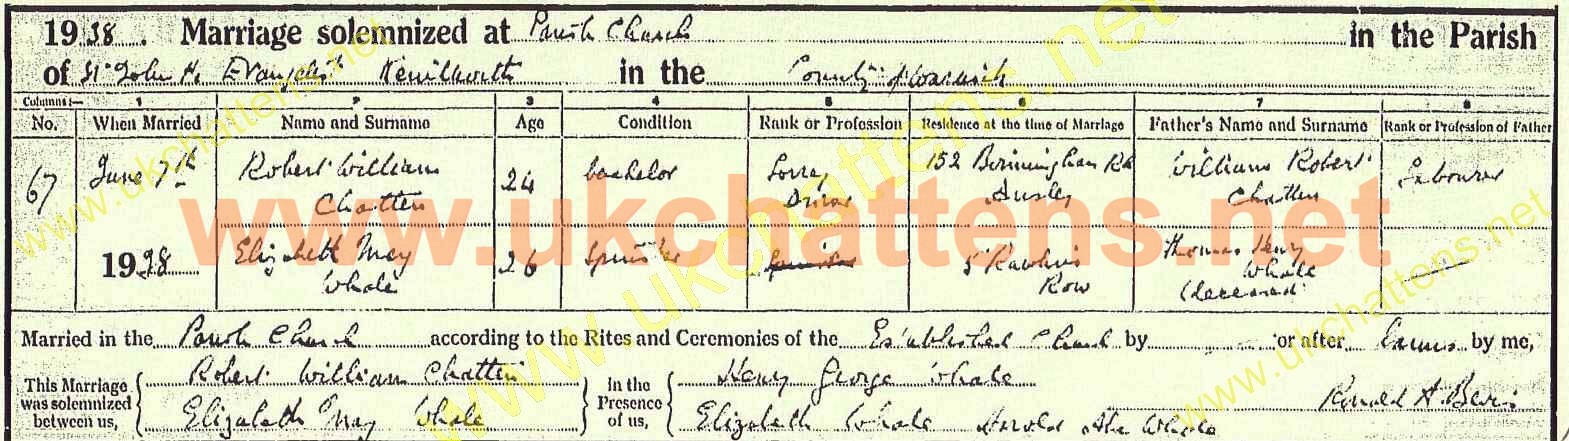 1938. Marriage solemnized at Parish Church in the Parish
of St John the Evangelist Kenilworth in the County of Warwick
Columns:— 1 2 3 4 5 6 7 8
No. When Married Name and Surname Age Condition Rank or Profession Residence at the time of Marriage Father's Name and Surname Rank or Profession of Father
67 June 7th 1938 Robert William Chatten 24 bachelor Lorry Driver 152 Birmingham Rd William Robert Chatten Labourer
Elizabeth May Whale 26 Spinster 5 Rawlins Row Thomas Henry Whale (deceased)
Married in the Parish Church according to the Rites and Ceremonies of the Established Church by or after Banns by me,
This Marriage was solemnized between us, Robert William Chatten Elizabeth May Whale In the Presence of us, Henry George Whale Elizabeth Whale Harold Whale Ronald A
www.ukchattens.net